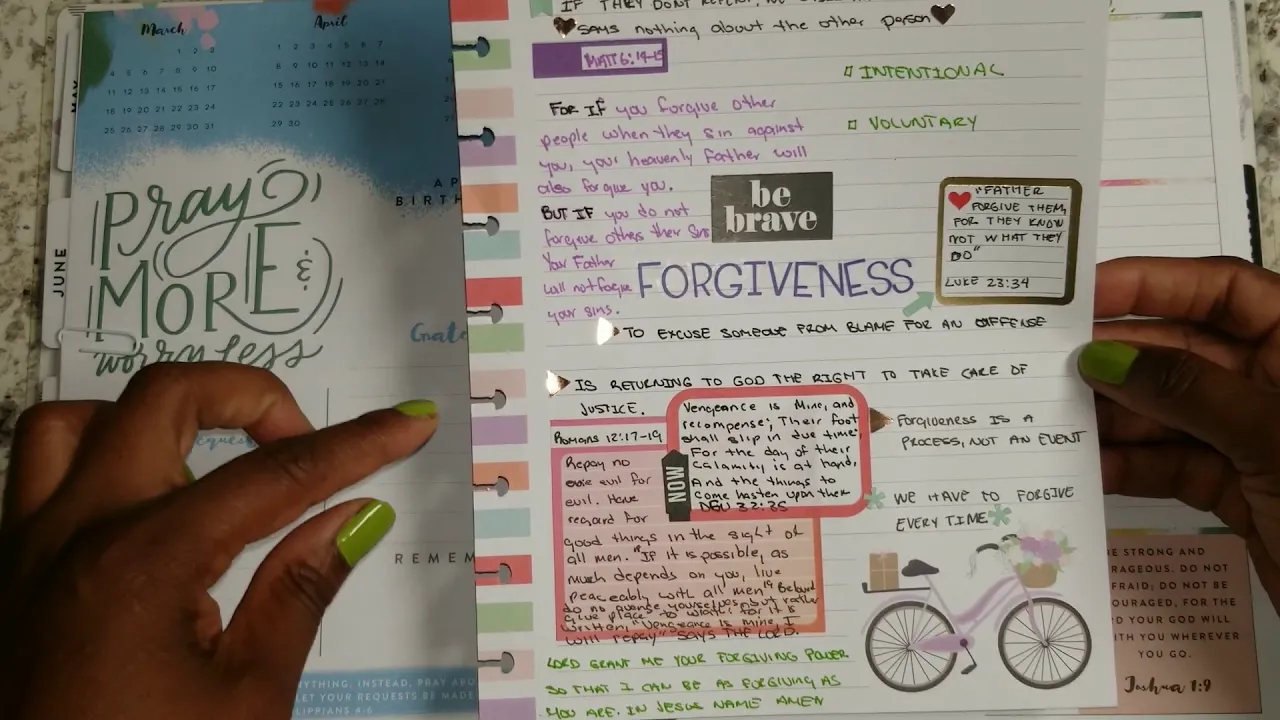 March
April
1 2 3
4 5 6 7 8 9 10
11 12 13 14 15 16 17
18 19 20 21 22 23 24
25 26 27 28 29 30 31
1 2 3 4 5 6 7
8 9 10 11 12 13 14
15 16 17 18 19 20 21
22 23 24 25 26 27 28
29 30
MAY
JUNE
pray
MORE &
worry less
AP
BIRTH
Grate
REMEM
YTHING. INSTEAD, PRAY ABO
LET YOUR REQUESTS BE MADE
LIPPIANS 4:6
IF THEY DON'T REPENT,
says nothing about the other person
MATT 6:14-15
FOR IF you forgive other
people when they sin against
you, your heavenly Father will
also forgive you.
BUT IF you do not
forgive others their sins
Your Father
will not forgive
your sins.
INTENTIONAL
VOLUNTARY
be
brave
"FATHER
FORGIVE THEM,
FOR THEY KNOW
NOT WHAT THEY
DO"
LUKE 23:34
FORGIVENESS
TO EXCUSE SOMEONE FROM BLAME FOR AN OFFENSE
IS RETURNING TO GOD THE RIGHT TO TAKE CARE OF
JUSTICE.
Romans 12:17-19
Repay no
evil for
evil. Have
regard for
good things in the sight of
all men. "If it is possible, as
much depends on you, live
peaceably with all men
do no avenge yourselves, but rather
give place to wrath; for it is
written, "Vengeance is mine, I
will repay" says THE LORD.
NOW
Vengeance is Mine, and
recompense; Their foot
shall slip in due time;
For the day of their
calamity is at hand,
And the things to
come hasten upon them
DEU 32:35
Forgiveness IS A
PROCESS, NOT AN EVENT
WE HAVE TO FORGIVE
EVERY TIME
LORD GRANT ME YOUR FORGIVING POWER
SO THAT I CAN BE AS FORGIVING AS
YOU ARE. IN JESUS NAME AMEN
E STRONG AND
RAGEOUS. DO NOT
FRAID; DO NOT BE
OURAGED, FOR THE
D YOUR GOD WILL
ITH YOU WHEREVER
YOU GO.
Joshua 1:9